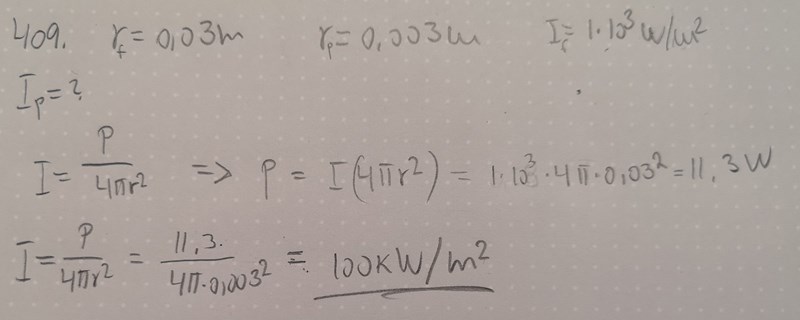 409. r_f = 0,03m r_p = 0,003m I_f = 1·10³ W/m²
I_p = ?
I = P/4πr² => P = I(4πr²) = 1·10³·4π·0,03² = 11,3 W
I = P/4πr² = 11,3./4π·0,003² = 100kW/m²